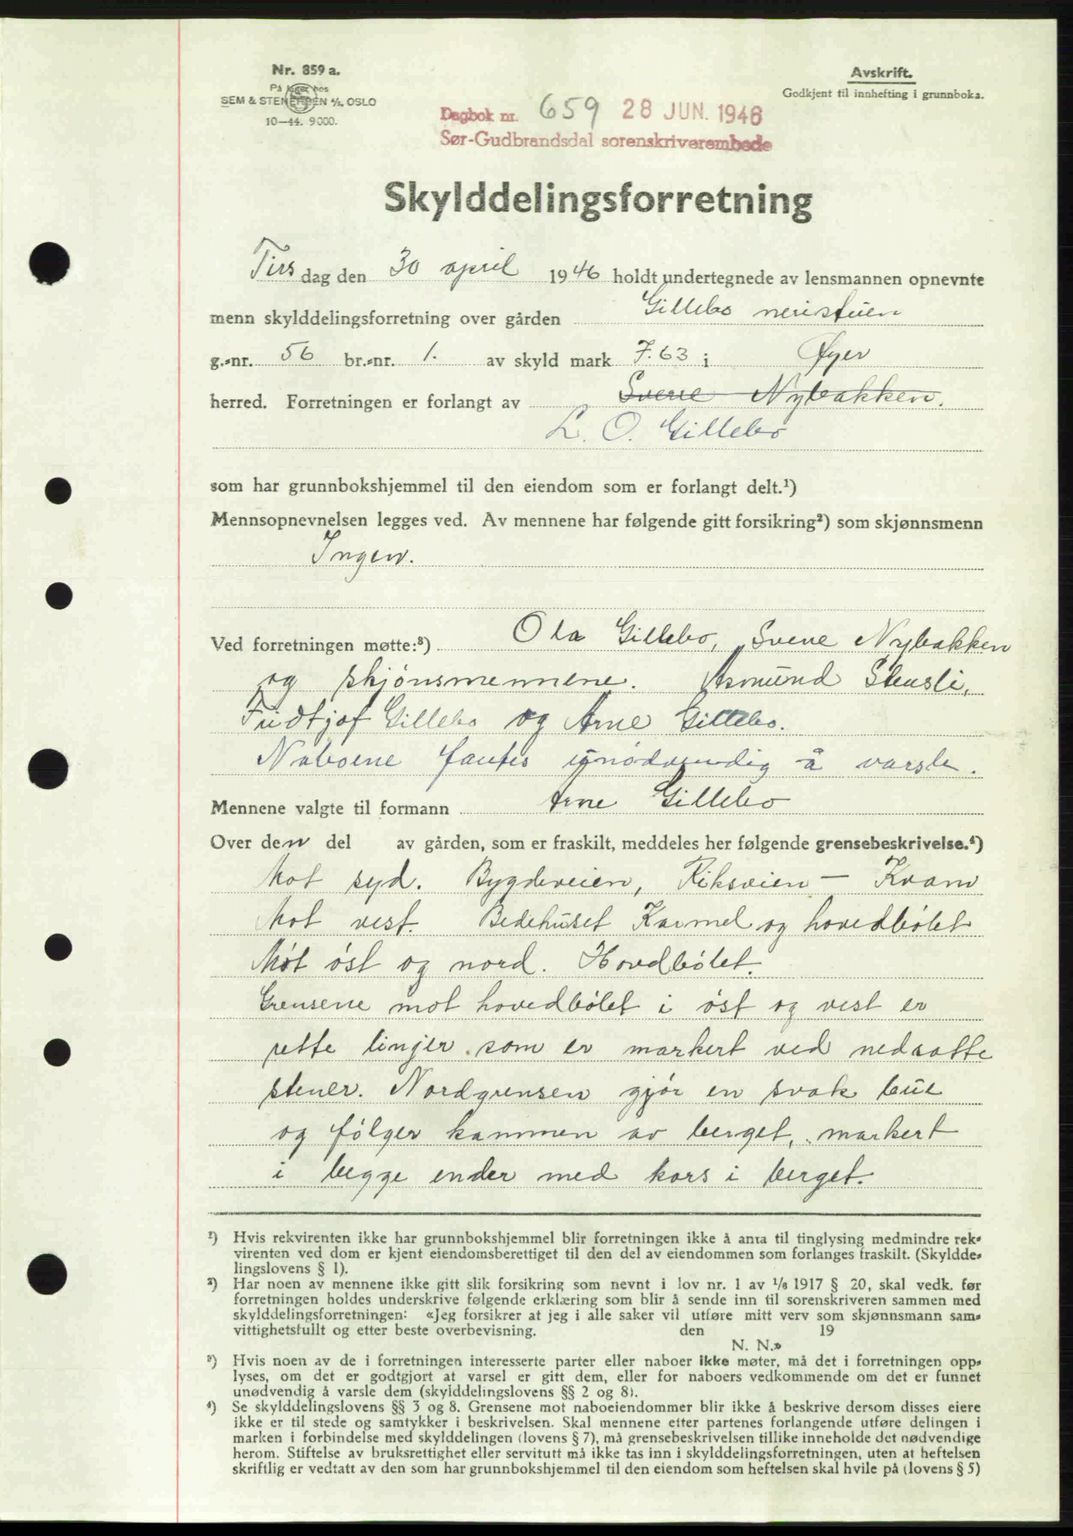 Nr. 859 a.
På lager hos
SEM & STENERSEN A/S, OSLO
10—44. 9000.
Avskrift.
Godkjent til innhefting i grunnboka.
Dagbok nr. 659 28 JUN. 1946
Sør-Gudbrandsdal sorenskriverembede
Skylddelingsforretning
Tirsdag den 30 april 1946 holdt undertegnede av lensmannen opnevnte
menn skylddelingsforretning over gården Gillebo neristuen
g.-nr. 56 br.-nr. 1. av skyld mark 7.63 i Øyer
herred. Forretningen er forlangt av Svene Nybakken.
L. O. Gillebo
som har grunnbokshjemmel til den eiendom som er forlangt delt.¹)
Mennsopnevnelsen legges ved. Av mennene har følgende gitt forsikring²) som skjønnsmenn
Ingen.
Ved forretningen møtte:³) Ola Gillebo, Svene Nybakken
og skjönsmennene. Asmund Stensli,
Fridtjof Gillebo og Arne Gillebo.
Naboene fantes unödvendig å varsle.
Mennene valgte til formann Arne Gillebo
Over den del av gården, som er fraskilt, meddeles her følgende grensebeskrivelse.⁴)
Mot syd. Bygdeveien, Riksveien — Kvam
Mot vest. Bedehuset Karmel og hovedbölet
Mot öst og nord. Hovdbölet.
Grensene mot hovedbölet i öst og vest er
rette linjer som er markert ved nedsatte
stener. Nordgrensen gjör en svak bue
og fölger kammen av berget, markert
i begge ender med kors i berget.
¹) Hvis rekvirenten ikke har grunnbokshjemmel blir forretningen ikke å anta til tinglysing medmindre rek-
virenten ved dom er kjent eiendomsberettiget til den del av eiendommen som forlanges fraskilt. (Skyldde-
lingslovens § 1).
²) Har noen av mennene ikke gitt slik forsikring som nevnt i lov nr. 1 av 1/6 1917 § 20, skal vedk. før
forretningen holdes underskrive følgende erklæring som blir å sende inn til sorenskriveren sammen med
skylddelingsforretningen: «Jeg forsikrer at jeg i alle saker vil utføre mitt verv som skjønnsmann sam-
vittighetsfullt og etter beste overbevisning. den 19
N. N.»
³) Hvis noen av de i forretningen interesserte parter eller naboer ikke møter, må det i forretningen opp-
lyses, om det er godtgjort at varsel er gitt dem, eller for naboers vedkommende om det er funnet
unødvendig å varsle dem (skylddelingslovens §§ 2 og 8).
⁴) Se skylddelingslovens §§ 3 og 8. Grensene mot naboeiendommer blir ikke å beskrive dersom disses eiere
ikke er til stede og samtykker i beskrivelsen. Skal mennene etter partenes forlangende utføre delingen i
marken i forbindelse med skylddelingen (lovens § 7), må grensebeskrivelsen tillike inneholde det nødvendige
herom. Stiftelse av bruksrettighet eller servitutt må ikke tas inn i skylddelingsforretningen, uten at heftelsen
skriftlig er vedtatt av den som har grunnbokshjemmel til den eiendom som heftelsen skal hvile på (lovens § 5)